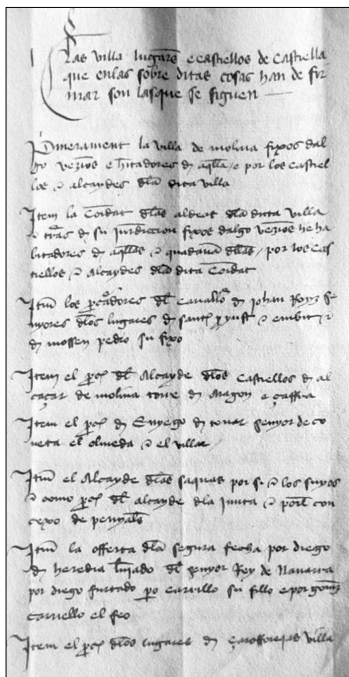 Las villa lugares e castellos de castella
que enlas sobre ditas cosas han de fir
mar son las que se siguen
Primerament la villa de molina fijos dal
go vezinos e habitadores de aquella e por los castie
llos e alcaydes dela dita villa
Item la Comdat delas aldeas dela dicta villa
e tierras de su jurdiccion fijos dalgo vezinos he ha
bitadores de aquellas e quadauna dellas por los cas
tiellos e Alcaydes dela dita Comdat
Item los procuradores del cauallero de Johan Royz se
nyores delos lugares de santi yust e embit e
de mossen pedro su fijo
Item el procurador del Alcayde delos Castiellos de al
caçar de molina torre de Aragon e çaffra
Item el procurador de Enyego de touar senyor de co
ueta el olmeda e el villar
Item el Alcayde delas saquas por si e los suyos
e como procurador del alcayde dela e por el con
cexo de penyalen
Item la offerta dela segura fecha por diego
de heredia del senyor Rey de Nauarra
por diego furtado pero carrillo su fillo e por gomez
carriello el feo
Item el procurador delos lugares de villa